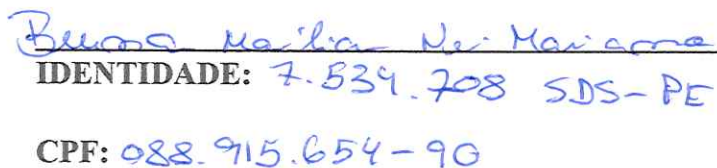 Bruna Marilia Nei Marianna
IDENTIDADE: 7.534.708 SDS-PE
CPF: 088.915.654-90